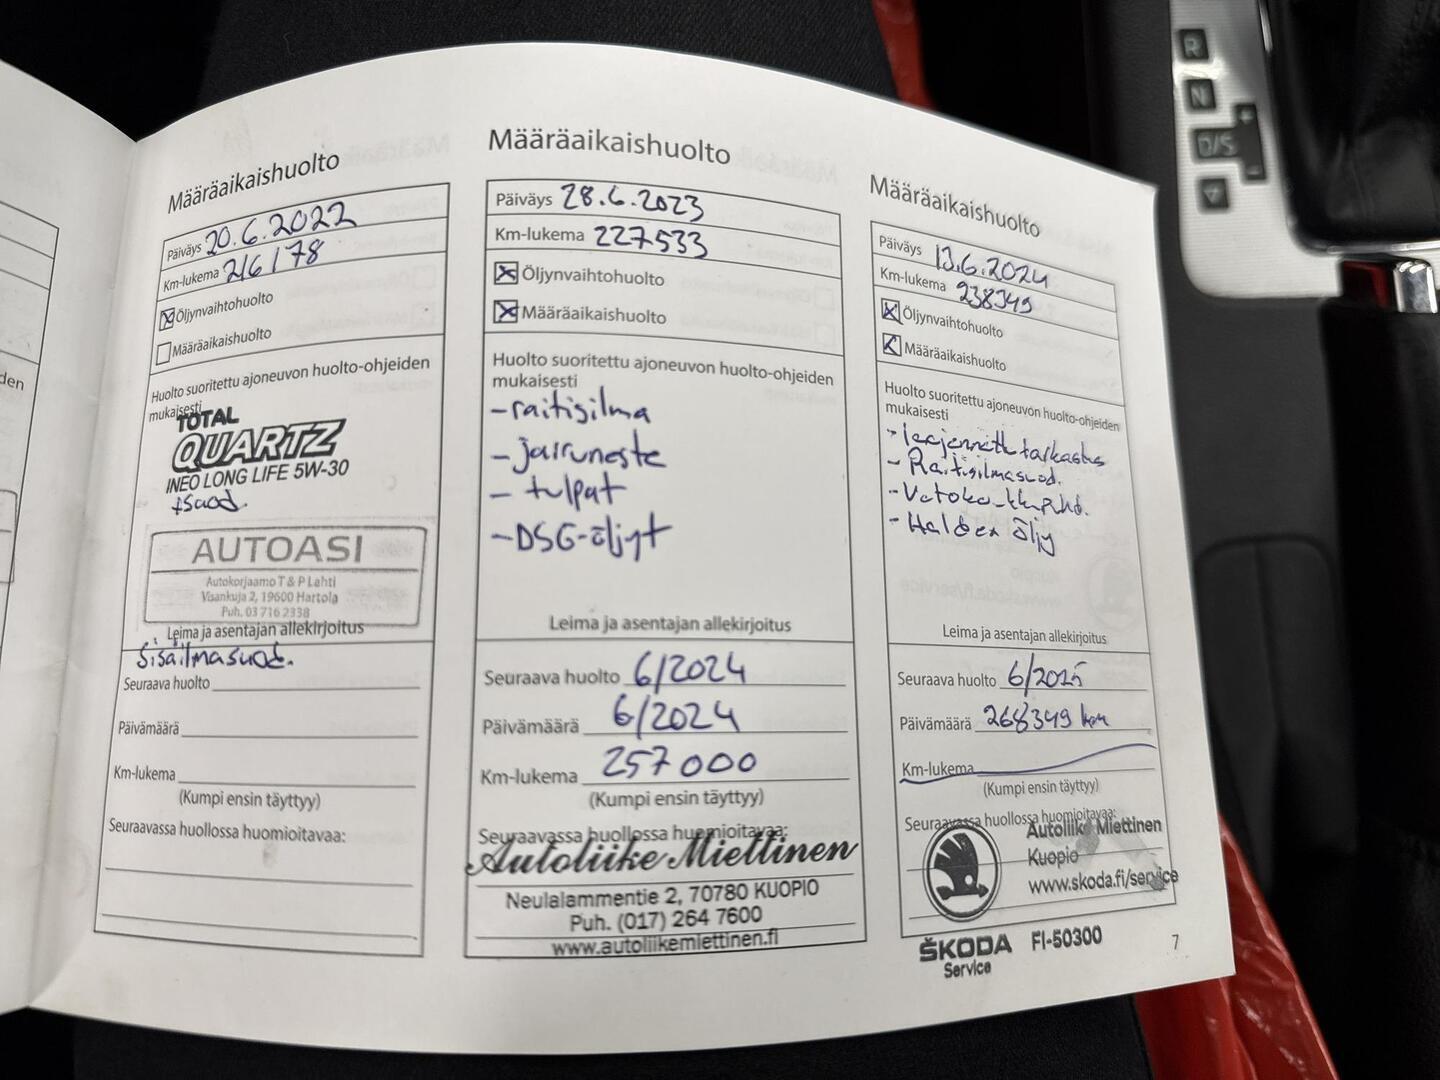 Määräaikaishuolto
Päiväys 20.6.2022
Km-lukema 216178
Öljynvaihtohuolto
Määräaikaishuolto
Huolto suoritettu ajoneuvon huolto-ohjeiden
mukaisesti
TOTAL
QUARTZ
INEO LONG LIFE 5W-30
+suod.
AUTOASI
Autokorjaamo T & P Lahti
Visankuja 2, 19600 Hartola
Puh. 03 716 2338
Leima ja asentajan allekirjoitus
Sisäilmasuod.
Seuraava huolto
Päivämäärä
Km-lukema
(Kumpi ensin täyttyy)
Seuraavassa huollossa huomioitavaa:
Määräaikaishuolto
Päiväys 28.6.2023
Km-lukema 227533
Öljynvaihtohuolto
Määräaikaishuolto
Huolto suoritettu ajoneuvon huolto-ohjeiden
mukaisesti
-raitisilma
-jarruneste
- tulpat
-DSG-öljyt
Leima ja asentajan allekirjoitus
Seuraava huolto 6/2024
Päivämäärä 6/2024
Km-lukema 257 000
(Kumpi ensin täyttyy)
Seuraavassa huollossa huomioitavaa:
Autoliike Miettinen
Neulalammentie 2, 70780 KUOPIO
Puh. (017) 264 7600
www.autoliikemiettinen.fi
Määräaikaishuolto
Päiväys 13.6.2024
Km-lukema 238349
Öljynvaihtohuolto
Määräaikaishuolto
Huolto suoritettu ajoneuvon huolto-ohjeiden
mukaisesti
- laajennettu tarkastus
- Raitisilmasuod.
- Haldex öljy
Leima ja asentajan allekirjoitus
Seuraava huolto 6/2025
Päivämäärä 268349 km
Km-lukema
(Kumpi ensin täyttyy)
Seuraavassa huollossa huomioitavaa:
Autoliike Miettinen
Kuopio
www.skoda.fi/service
ŠKODA FI-50300
Service
7
R
N
D/S
+
-